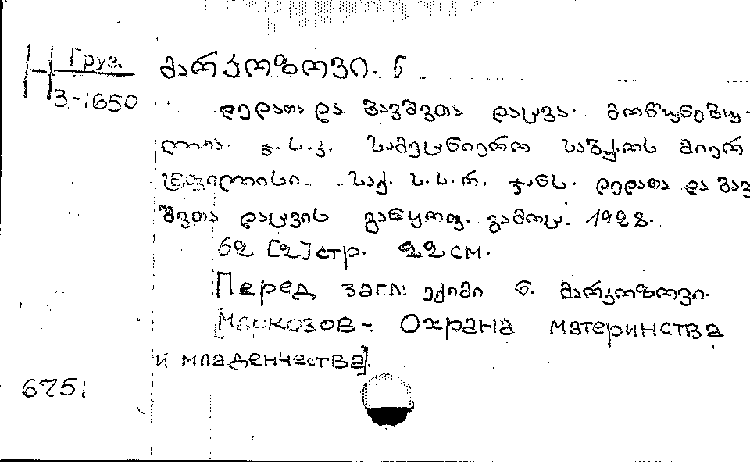 Груз.
3-1650
მარკოზოვი. ნ
დედათა და ბავშვთა დაცვა. მოწონებუ-
ლია. ჯ. ს. კ. სამეცნიერო საბჭოს მიერ
ტფილისი. საქ. ს.ს.რ. ჯანს. დედათა და ბავ
შვთა დაცვის განყოფ. გამოც. 1928.
62 [2] стр. 22 см.
Перед загл: ექიმი ნ. მარკოზოვი.
[Маркозов - Охрана материнства
и младенчества].
6751